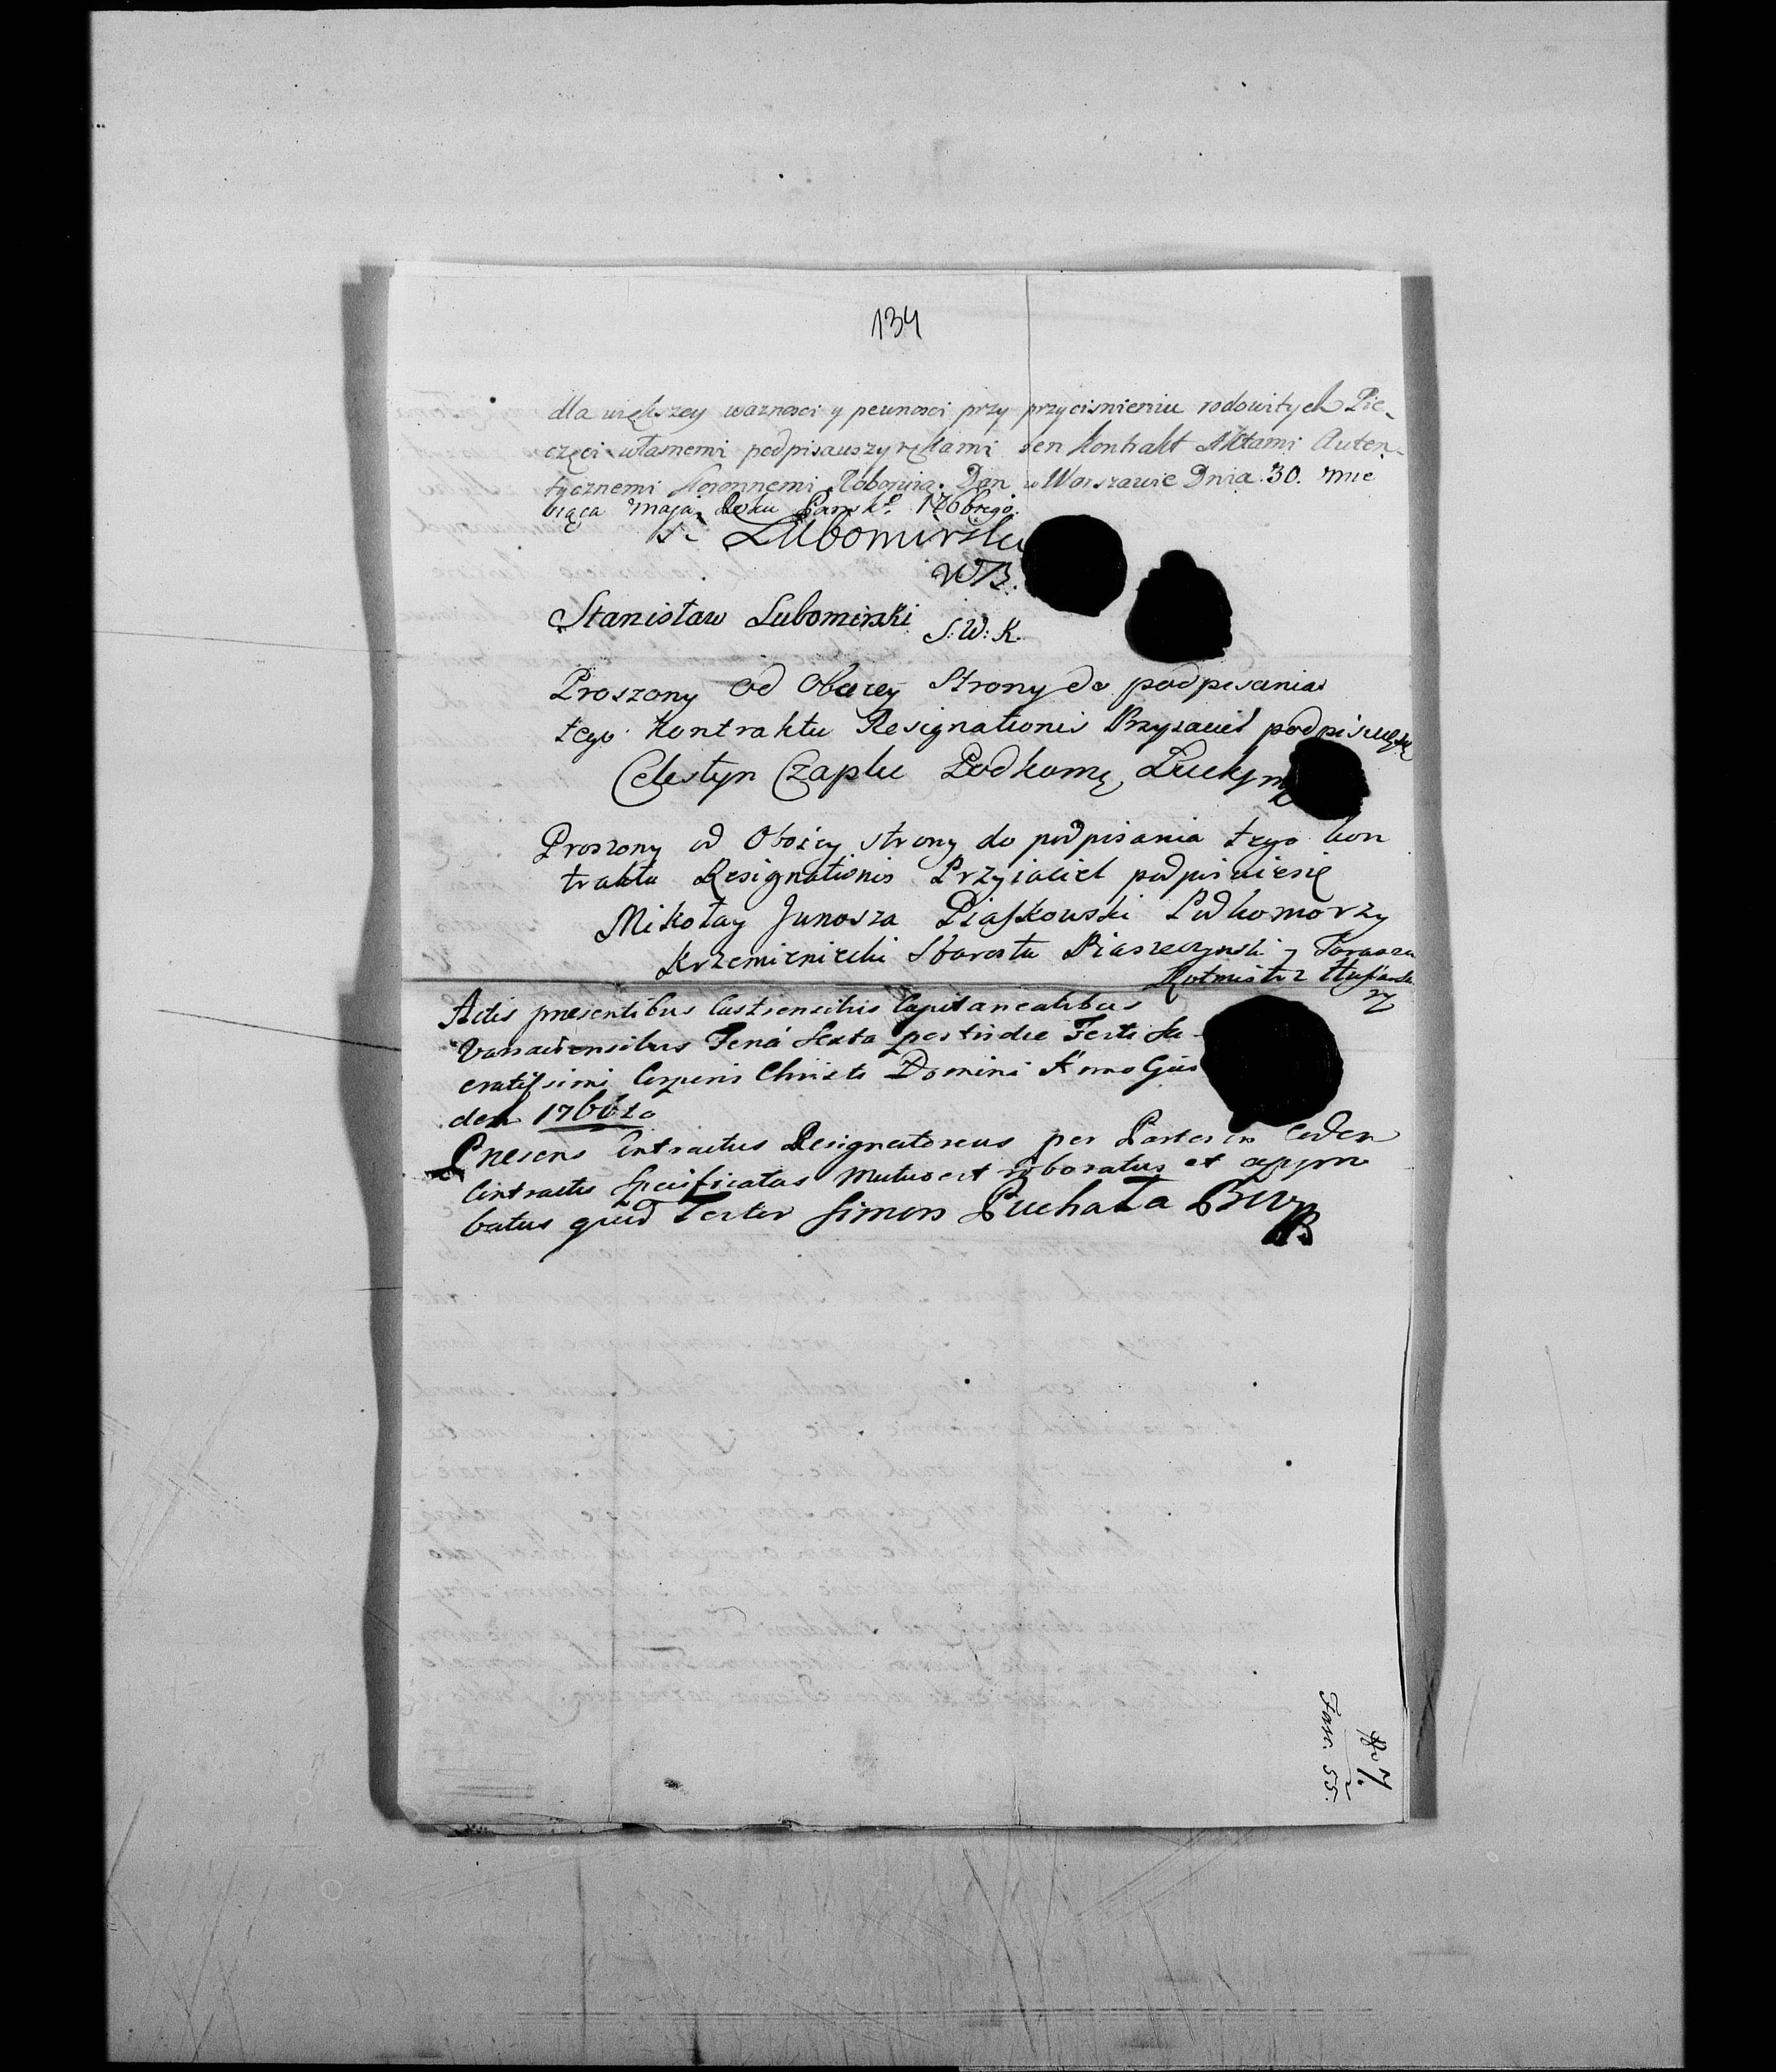 134
dla większey wazności y pewności przy przyciśnieniu rodowitych Pie-
częci własnemi podpisawszy rękami ten Kontrakt Aktami Auten-
tycznemi Koronnemi Roboruią. Dan w Warszawie Dnia 30. mie
siąca Maja Roku Pańsko.
S. Lubomirski
W B.
Stanisław Lubomirski S: W: K.
Proszony od Obuczey Strony do podpisania
tego Kontraktu Resignationis Przyiaciel podpisuię się
Celestyn Czaplic Podkomę Łucky mp
Proszony od Oboiey strony do podpisania tego kon
traktu Resignationis Przyiaciel podpisuiesię
Mikołay Junosza Piaskowski Podkomorzy
Krzemieniecki Starosta
Rotmistrz
Actis presentibus Castrensibus Capitanealibus
Varsaviensibus Feria Sexta postridie Festi Sa-
cratissimi Corporis Christi Domini Anno Ejus
dem
Presens Contractus Resignatorius per Partes in eodem
Contractu Specificatas Mutuo est roboratus et appro
batus quod Testor Simon Puchała
No 7.
Fasc. 55.